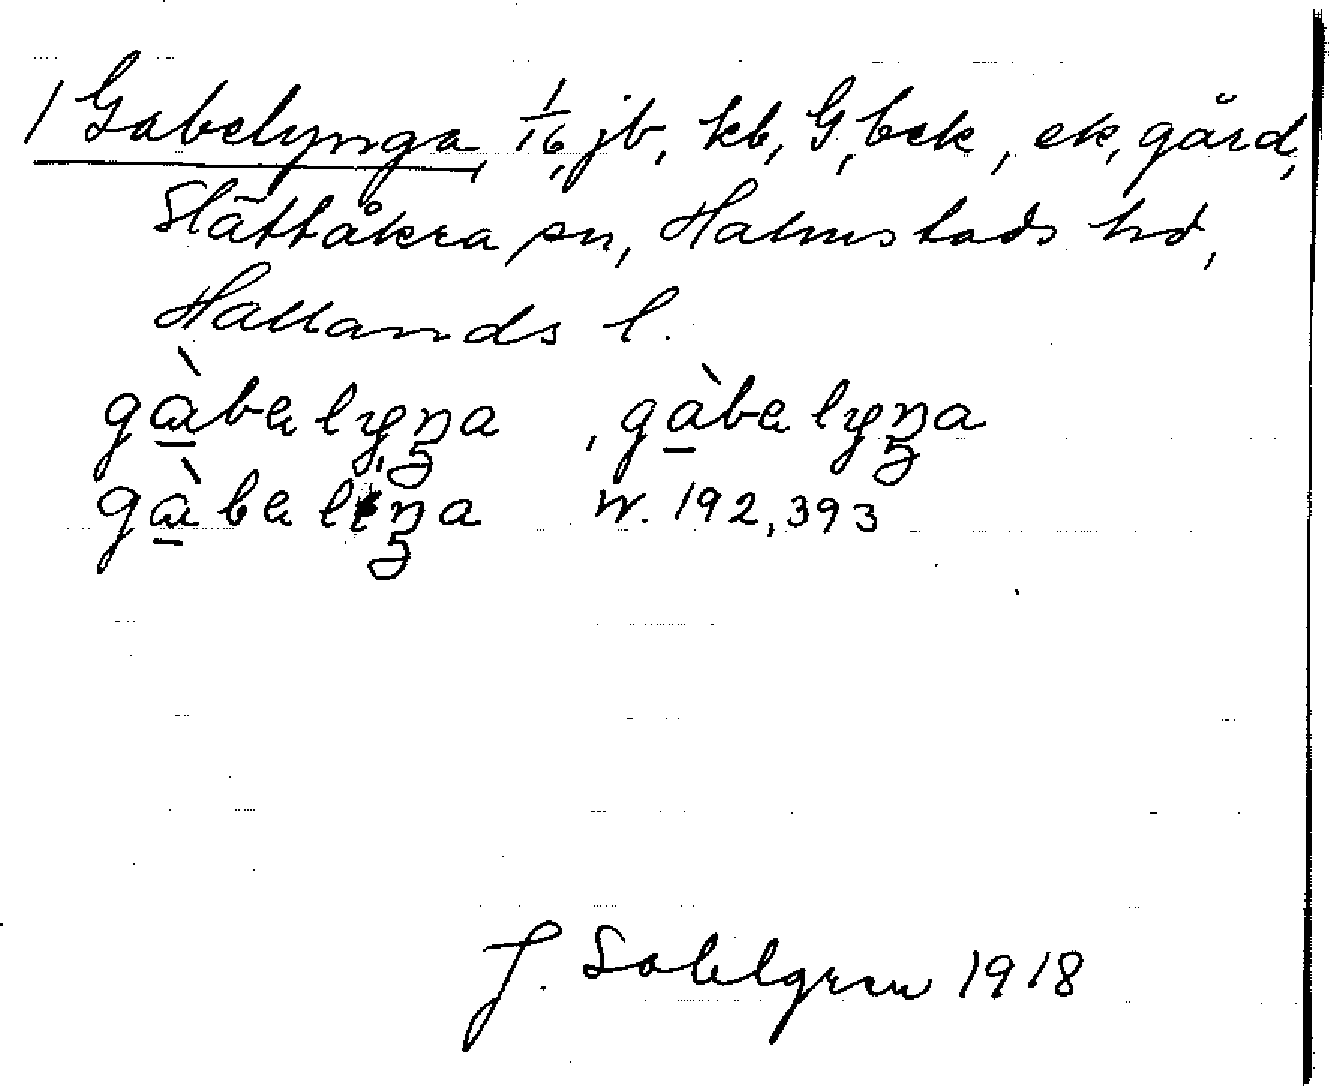 1 Gabelynga, 1/16, jb, kb, G, bek, ek, gård,
Slättåkra sn, Halmstads hd,
Hallands l.
gàbalyŋa, gàbalyŋa
gàbaliŋa W. 192,393
J. Sahlgren 1918